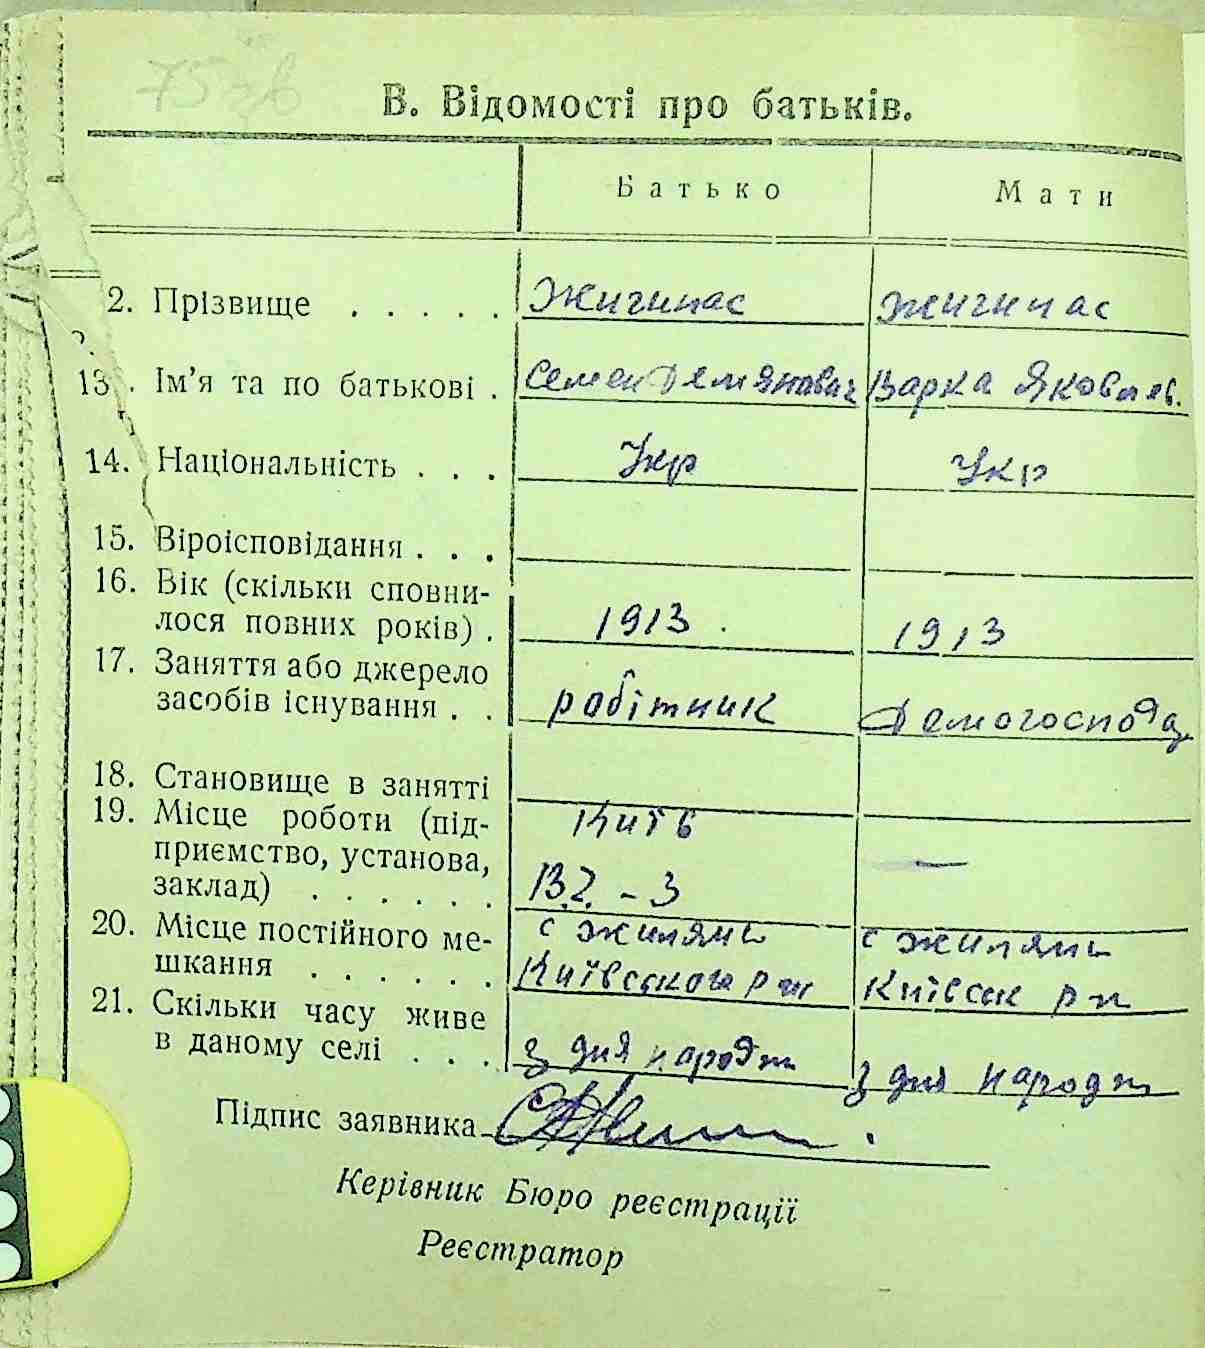 В. Відомості про батьків.
Батько Мати
2. Прізвище . . . . . Жигинас Жигинас
13. Ім'я та по батькові . Семен Демянович Варка Яковлев.
14. Національність . . . Укр Укр
15. Віроісповідання . . .
16. Вік (скільки сповни-
лося повних років) . 1913 . 1913
17. Заняття або джерело
засобів існування . . робітник Домогоспода
18. Становище в занятті
19. Місце роботи (під- Київ
приємство, установа, —
заклад) . . . . . .
20. Місце постійного ме- с Жиляни с Жиляни
шкання . . . . . . Київського рн Київськ рн
21. Скільки часу живе
в даному селі . . . з дня народж з дня народж
Підпис заявника
Керівник Бюро реєстрації
Реєстратор